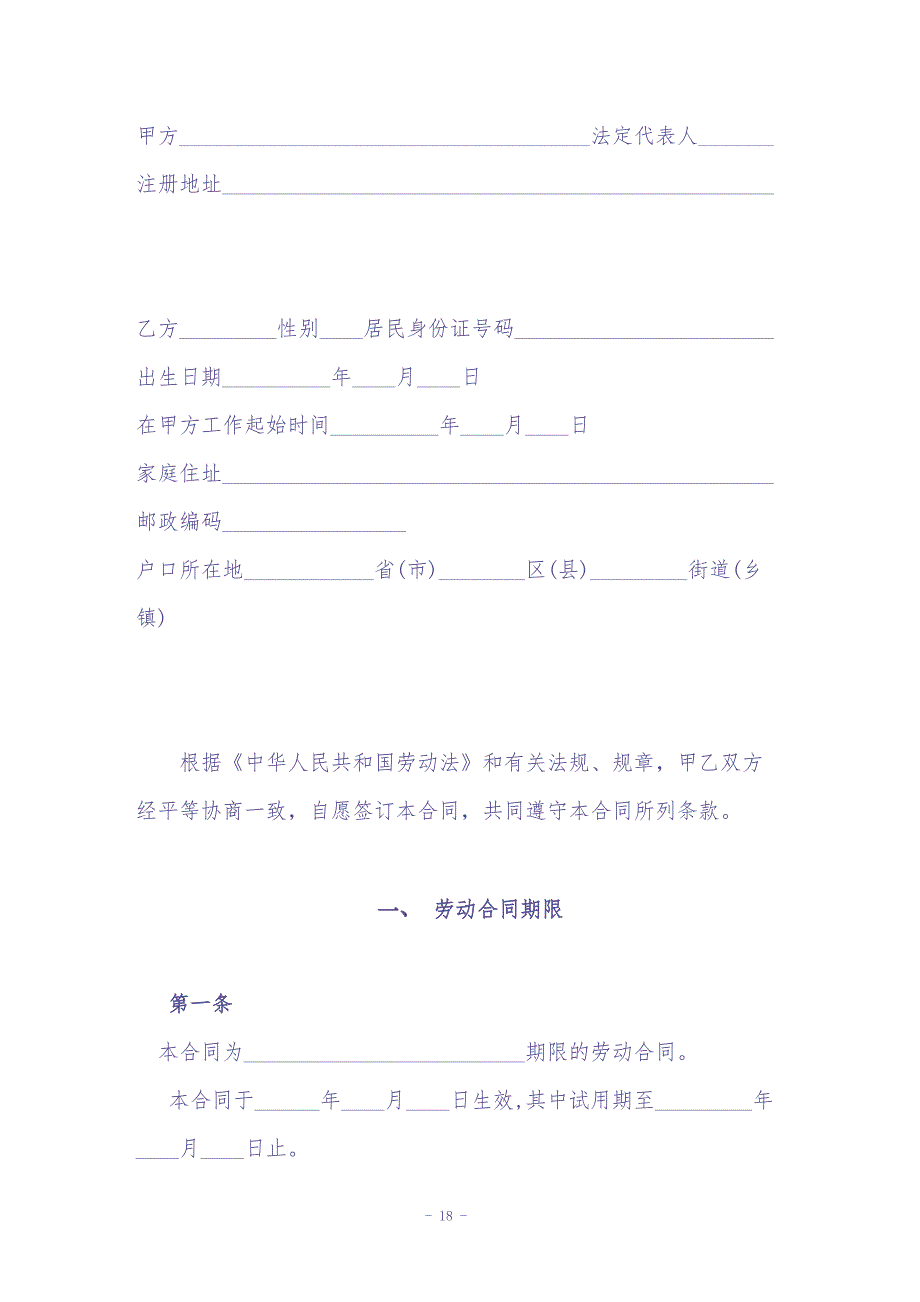 甲方______________________________________法定代表人_______
注册地址___________________________________________________
乙方_________性别____居民身份证号码________________________
出生日期__________年____月____日
在甲方工作起始时间__________年____月____日
家庭住址___________________________________________________
邮政编码_________________
户口所在地____________省(市)________区(县)_________街道(乡
镇)
根据《中华人民共和国劳动法》和有关法规、规章，甲乙双方
经平等协商一致，自愿签订本合同，共同遵守本合同所列条款。
一、 劳动合同期限
第一条
本合同为__________________________期限的劳动合同。
本合同于______年____月____日生效,其中试用期至_________年
____月____日止。
- 18 -